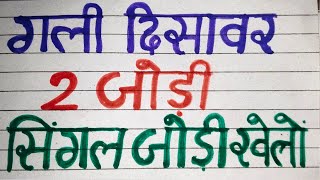 गली दिसावर
2 जोड़ी
सिंगल जोड़ी खेलो